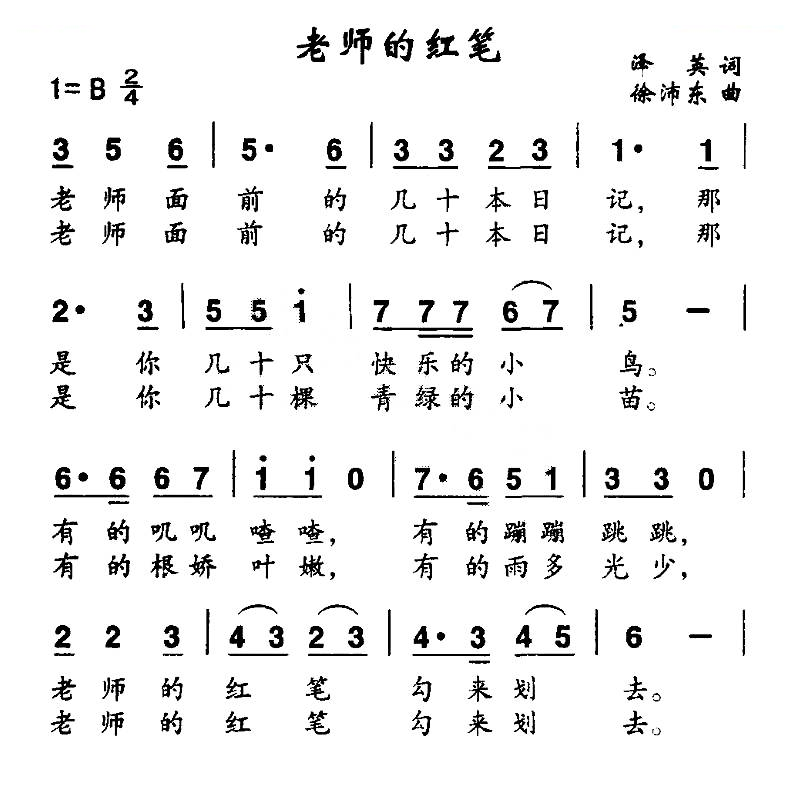 老师的红笔
泽 英 词
1= B 2/4
徐沛东 曲
3 5 6 | 5· 6 | 3 3 2 3 | 1· 1 |
老 师 面 前 的 几 十 本 日 记, 那
老 师 面 前 的 几 十 本 日 记, 那
2· 3 | 5 5 i | 7 7 7 6 7 | 5 — |
是 你 几 十 只 快 乐 的 小 鸟。
是 你 几 十 棵 青 绿 的 小 苗。
6· 6 6 7 | i i 0 | 7· 6 5 1 | 3 3 0 |
有 的 叽 叽 喳 喳, 有 的 蹦 蹦 跳 跳,
有 的 根 娇 叶 嫩, 有 的 雨 多 光 少,
2 2 3 | 4 3 2 3 | 4· 3 4 5 | 6 — |
老 师 的 红 笔 勾 来 划 去。
老 师 的 红 笔 勾 来 划 去。